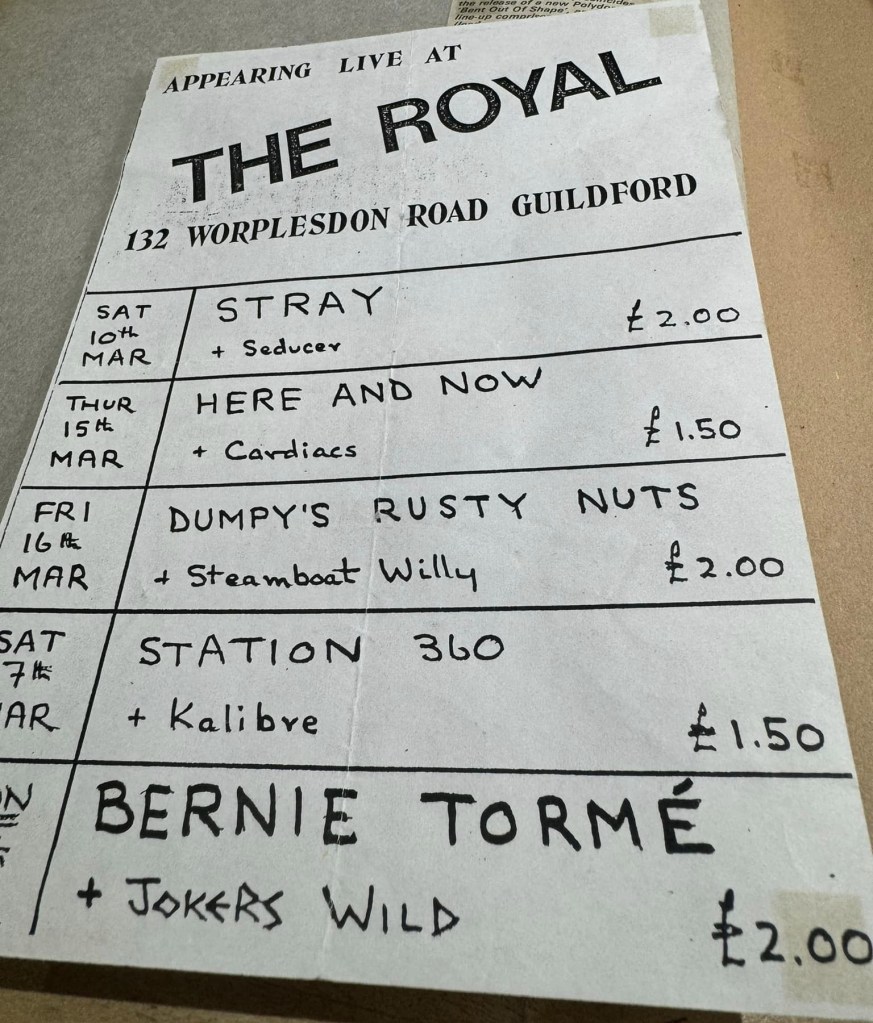 the release of a new Polydor
'Bent Out Of Shape',
line-up
APPEARING LIVE AT
THE ROYAL
132 WORPLESDON ROAD GUILDFORD
SAT
10th
MAR
STRAY
+ Seducer
£2.00
THUR
15th
MAR
HERE AND NOW
+ Cardiacs
£1.50
FRI
16th
MAR
DUMPY'S RUSTY NUTS
+ Steamboat Willy
£2.00
SAT
7th
AR
STATION 360
+ Kalibre
£1.50
BERNIE TORMÉ
+ JOKERS WILD
£2.00